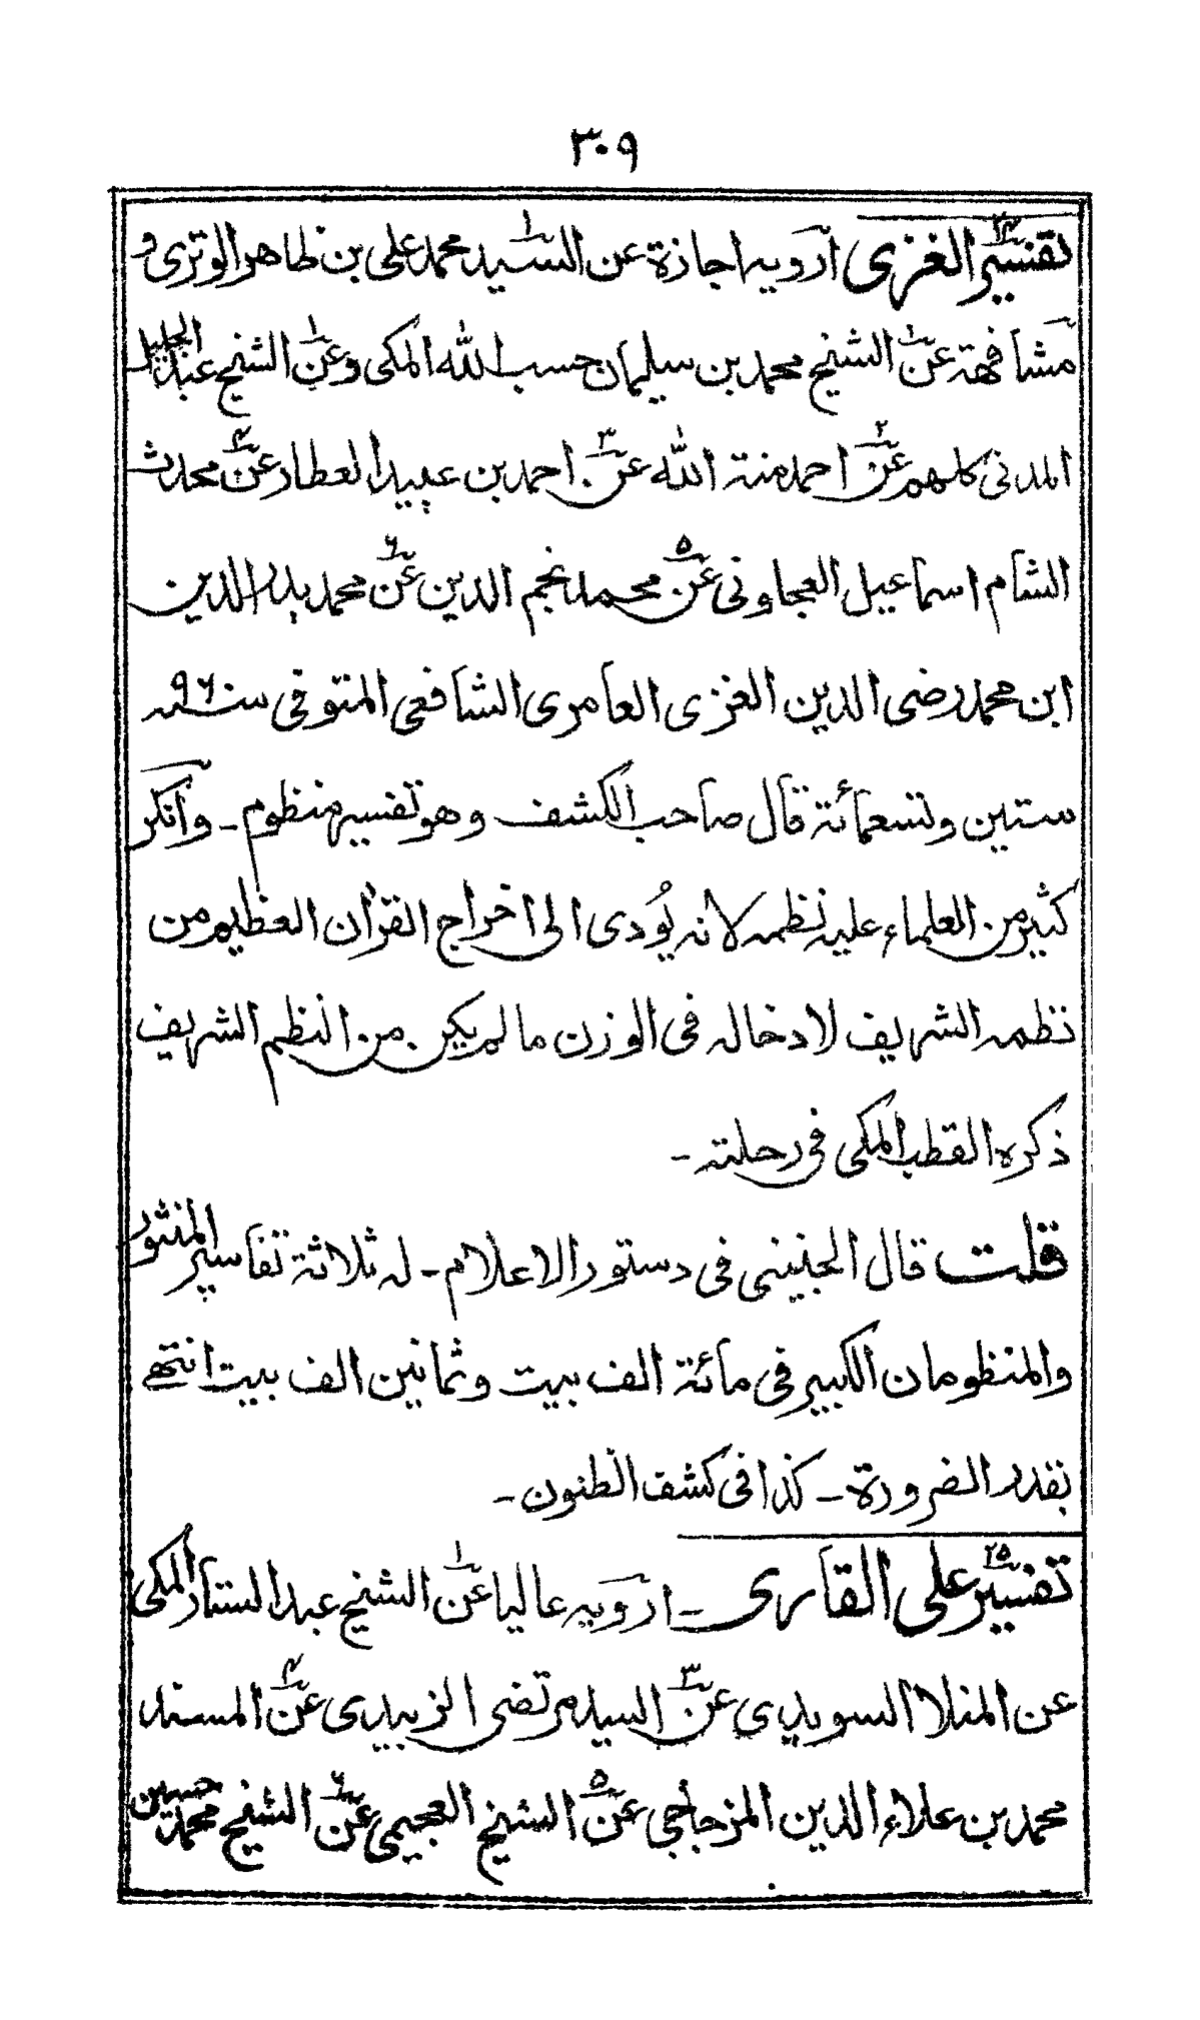 ٣٠٩
تفسير الغزى ارويه اجازة عن السيد محمد على بن ظاهر الوترى و
مشافهة عن الشيخ محمد بن سليمان حسب الله المكى وعن الشيخ عبد الجليل
المدنى كلهم عن احمد منة الله عن احمد بن عبيد العطار عن محدث
الشام اسماعيل العجلونى عن محمد نجم الدين عن محمد بدر الدين
ابن محمد رضى الدين الغزى العامرى الشافعى المتوفى سنة ٩٦٠
ستين وتسعمائة قال صاحب الكشف وهو تفسير منظوم - وانكر
كثير من العلماء عليه نظمه لانه يُودى الى اخراج القرأن العظيم من
نظمه الشريف لادخاله فى الوزن ما لم يكن من النظم الشريف
ذكره القطب المكى فى رحلته -
قلت قال الجنينى فى دستور الاعلام - له ثلاثة تفاسير المنثور
والمنظومان الكبير فى مائة الف بيت وثمانين الف بيت انتهى
بقدر الضرورة - كذا فى كشف الظنون -
٢٥ تفسير على القارى - ارويه عاليا عن الشيخ عبد الستار المكى
عن المنلا السويدى عن السيد مرتضى الزبيدى عن المسند
محمد بن علاء الدين المزجاجى عن الشيخ العجيمى عن الشيخ محمد حسين